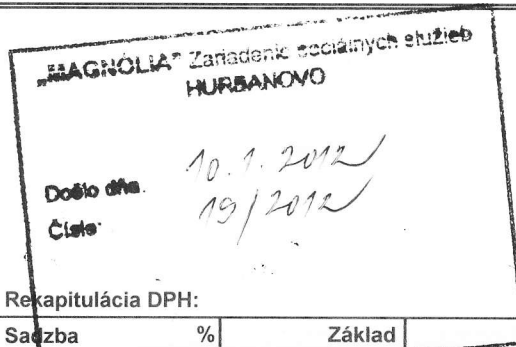 „MAGNÓLIA" Zariadenie sociálnych služieb
HURBANOVO
Došlo dňa. 10.1.2012
Číslo: 19/2012
Rekapitulácia DPH:
Sadzba % Základ